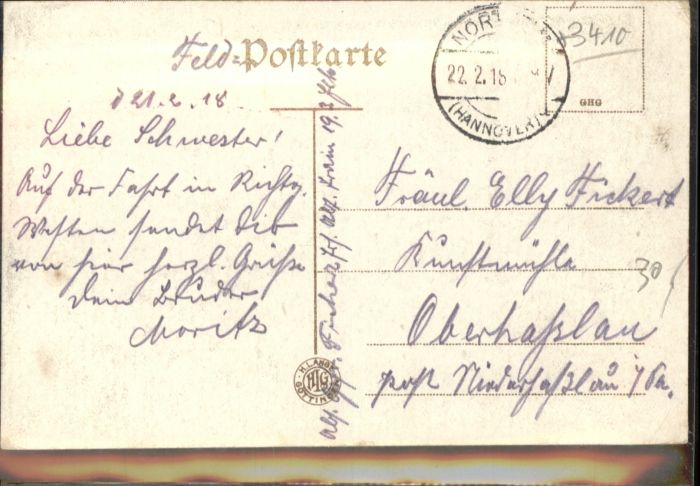 Feld-Postkarte
d 21.2.18
Liebe Schwester!
Auf der Fahrt in Richtg.
Westen sendet dir
von hier herzl. Grüße
dein Bruder
Moritz
NORT
22.2.18
(HANNOVER)
3410
GHG
Fräul. Elly Fickert
Kunstmühle
Oberhaßlau
post Niederhaßlau i/Sa.
30
H. LANGE
HLG
GÖTTINGEN
Fickert
19.